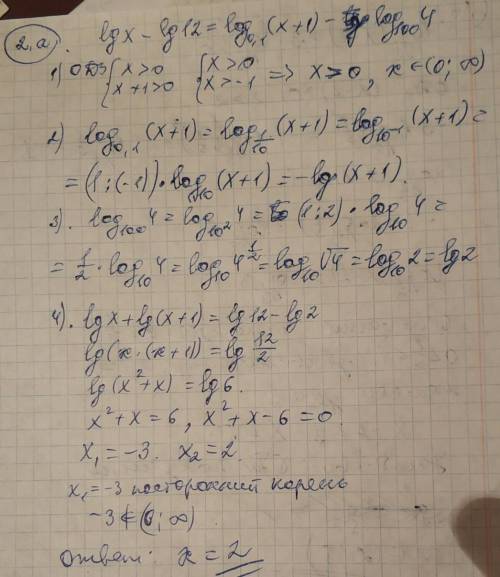 2,а). lg x − lg 12 = log₀,₁(x+1) − log₁₀₀ 4
1) ОДЗ { x>0 { x>0 => x>0, x ∈ (0; ∞)
x+1>0 x>-1
2) log₀,₁ (x+1) = log_{1/10} (x+1) = log_{10⁻¹} (x+1) =
= (1:(-1))·log₁₀ (x+1) = -lg (x+1).
3). log₁₀₀ 4 = log_{10²} 4 = (1:2)·log₁₀ 4 =
= 1/2 · log₁₀ 4 = log₁₀ 4^{1/2} = log₁₀ √4 = log₁₀ 2 = lg 2
4). lg x + lg (x+1) = lg 12 − lg 2
lg (x·(x+1)) = lg 12/2
lg (x² + x) = lg 6.
x² + x = 6, x² + x − 6 = 0
x₁ = −3. x₂ = 2.
x₁ = −3 посторонний корень
−3 ∉ (0; ∞)
ответ: x = 2